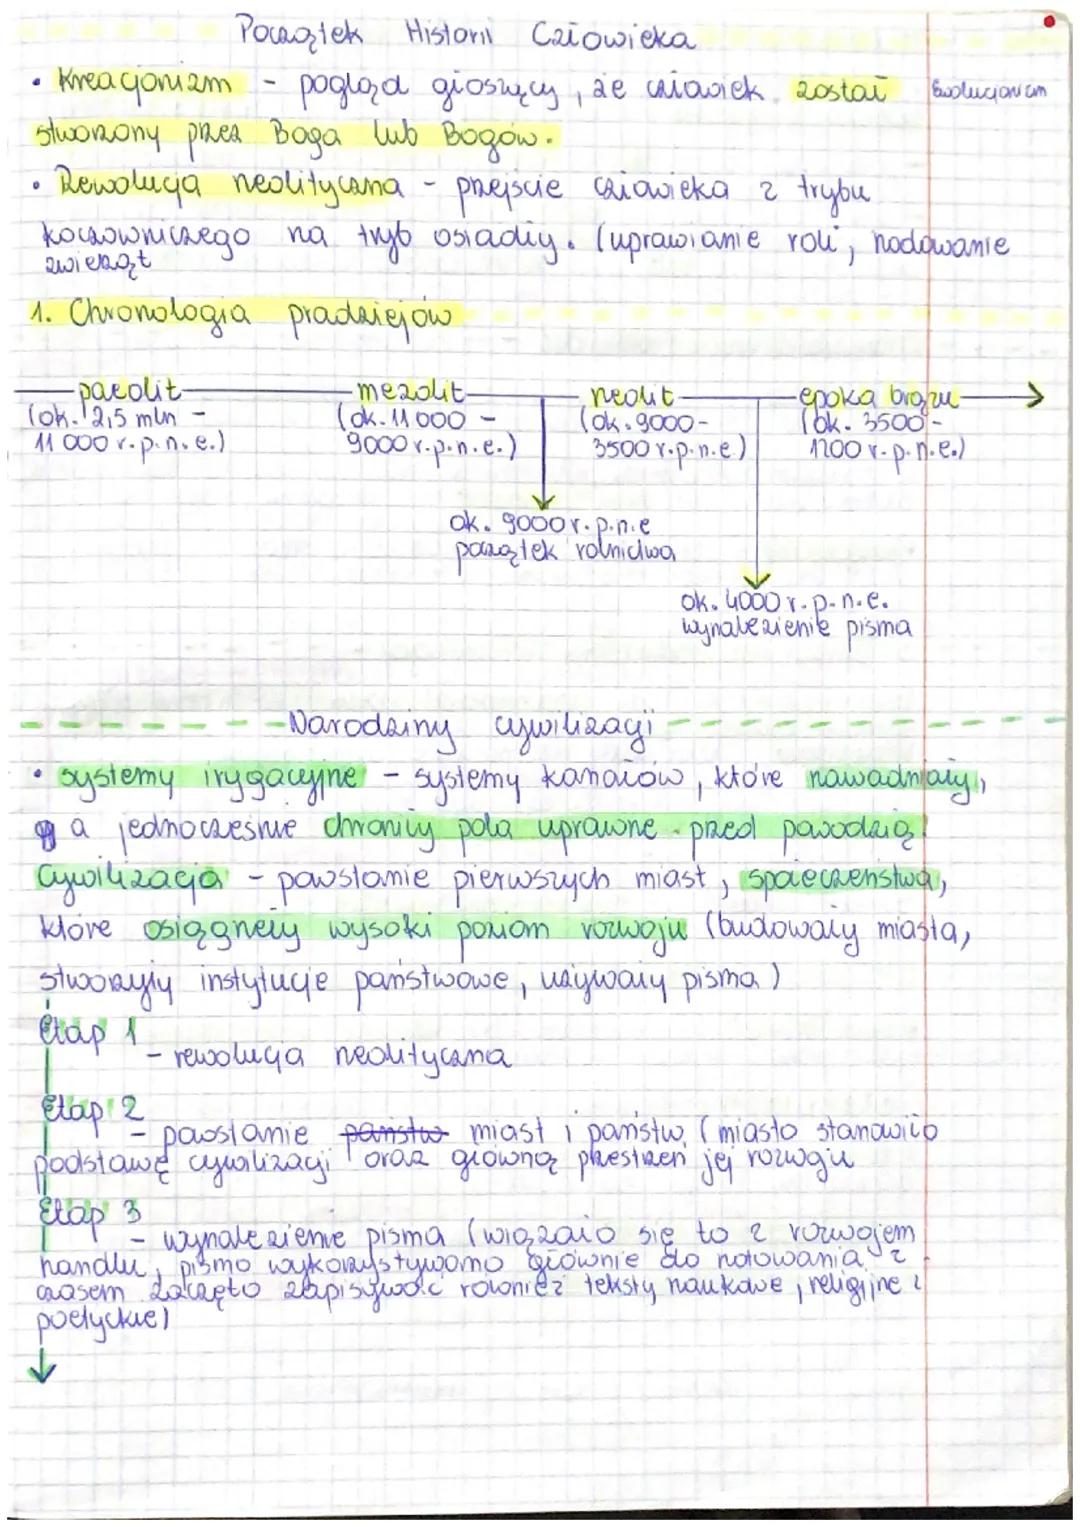 Początek Historii Człowieka
• Kreacjonizm - pogląd głoszący, że człowiek został
Ewolucjonizm
stworzony przez Boga lub Bogów.
• Rewolucja neolityczna - przejście człowieka z trybu
koczowniczego na tryb osiadły. (uprawianie roli, hodowanie
zwierząt
1. Chronologia pradziejów
paleolit mezolit neolit epoka brązu
(ok. 2,5 mln - (ok. 11 000 - (ok. 9000- (ok. 3500 -
11 000 r.p.n.e.) 9000 r.p.n.e.) 3500 r.p.n.e) 1200 r.p.n.e.)
ok. 9000 r.p.n.e
początek rolnictwa
ok. 4000 r.p.n.e.
wynalezienie pisma
Narodziny cywilizacji
• systemy irygacyjne - systemy kanałów, które nawadniały,
a jednocześnie chroniły pola uprawne przed powodzią
cywilizacja - powstanie pierwszych miast, społeczeństwa,
które osiągnęły wysoki poziom rozwoju (budowały miasta,
stworzyły instytucje państwowe, używały pisma)
Etap 1
- rewolucja neolityczna
Etap 2
- powstanie państw miast i państw (miasto stanowiło
podstawę cywilizacji oraz główną przestrzeń jej rozwoju
Etap 3
- wynalezienie pisma (wiązało się to z rozwojem
handlu, pismo wykorzystywano głównie do notowania, z
czasem zaczęto zapisywać również teksty naukowe, religijne i
poetyckie)